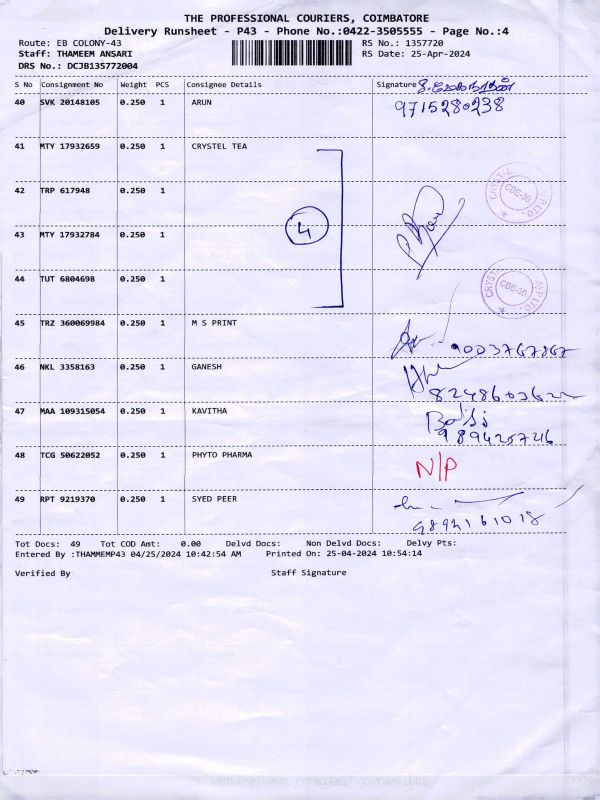 THE PROFESSIONAL COURIERS, COIMBATORE
Delivery Runsheet - P43 - Phone No.:0422-3505555 - Page No.:4
Route: EB COLONY-43 RS No.: 1357720
Staff: THAMEEM ANSARI RS Date: 25-Apr-2024
DRS No.: DCJB135772004
S No Consignment No Weight PCS Consignee Details Signature
40 SVK 20148105 0.250 1 ARUN 9715280238
41 MTY 17932659 0.250 1 CRYSTEL TEA
42 TRP 617948 0.250 1
4
43 MTY 17932784 0.250 1
44 TUT 6804698 0.250 1
CBE-30.
CBE-30.
45 TRZ 360069984 0.250 1 M S PRINT
46 NKL 3358163 0.250 1 GANESH
47 MAA 109315054 0.250 1 KAVITHA
48 TCG 50622052 0.250 1 PHYTO PHARMA N/P
49 RPT 9219370 0.250 1 SYED PEER
Tot Docs: 49 Tot COD Amt: 0.00 Delvd Docs: Non Delvd Docs: Delvy Pts:
Entered By :THAMMEMP43 04/25/2024 10:42:54 AM Printed On: 25-04-2024 10:54:14
Verified By Staff Signature